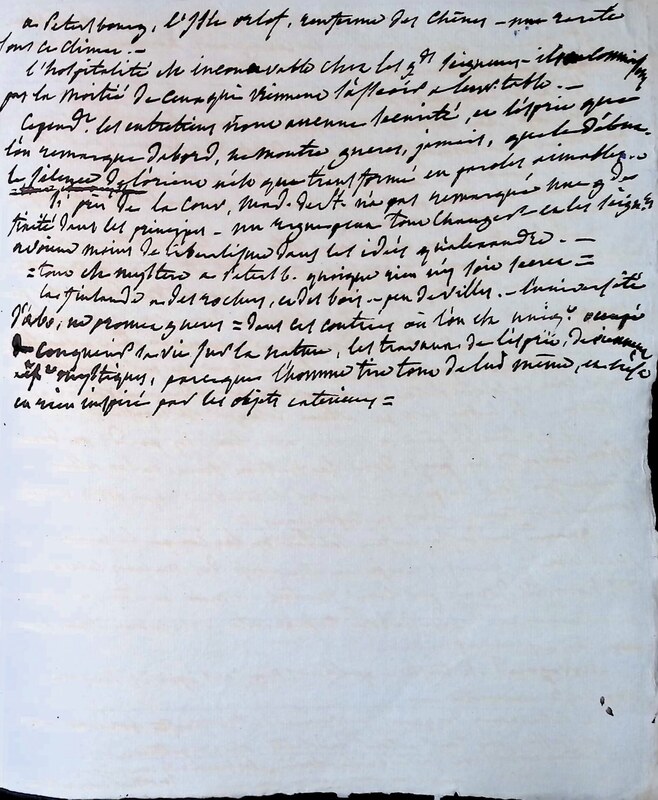 a Petersbourg, l'Isle orlof, renferme des Chênes - une rareté
sous ce climat. -
l'hospitalité est inconcevable chez les gds seigneurs - ils
pas la moitié de ceux qui viennent s'asseoir a leur table. -
Cependt. les entretiens n'ont aucune intimité, et l'esprit que
l'on remarque d'abord, ne montre gueres, jamais, que le début -
le silence de l'orient n'est que transformé en paroles aimables. -
pres de la Cour, mad. de st. n'a pas remarqué une gde
fixité dans les principes - un regne peut tout changer et les seigrs
avoient moins de liberalisme dans les idées qu'alexandre. -
= tout est mystere a Petersb. quoique rien n'y soit secret =
la finlande a des rochers, et des bois - peu de villes. - l'université
d'abo, ne promet gueres = dans ces contrées où l'on est uniqt. occupé
a conquerir sa vie sur la nature, les travaux de l'esprit, deviennent
mystiques, parceque l'homme tire tout de lui même, et n'est
en rien inspiré par les objets exterieurs =